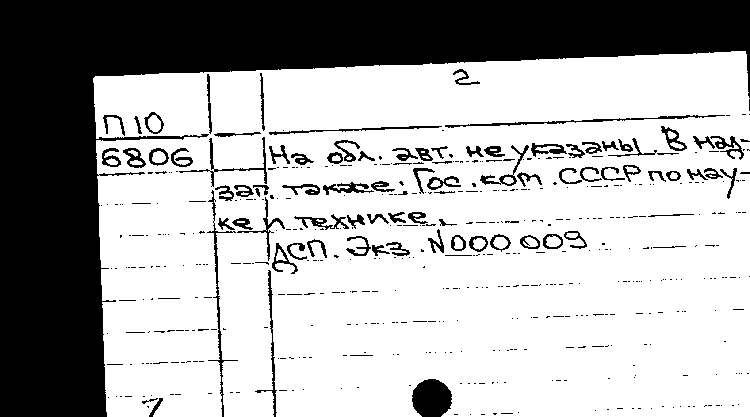 2
П10
6806
На обл. авт. не указаны. В над-
заг. также: Гос. ком. СССР по нау-
ке и технике.
ДСП. Экз. N000 009.
7